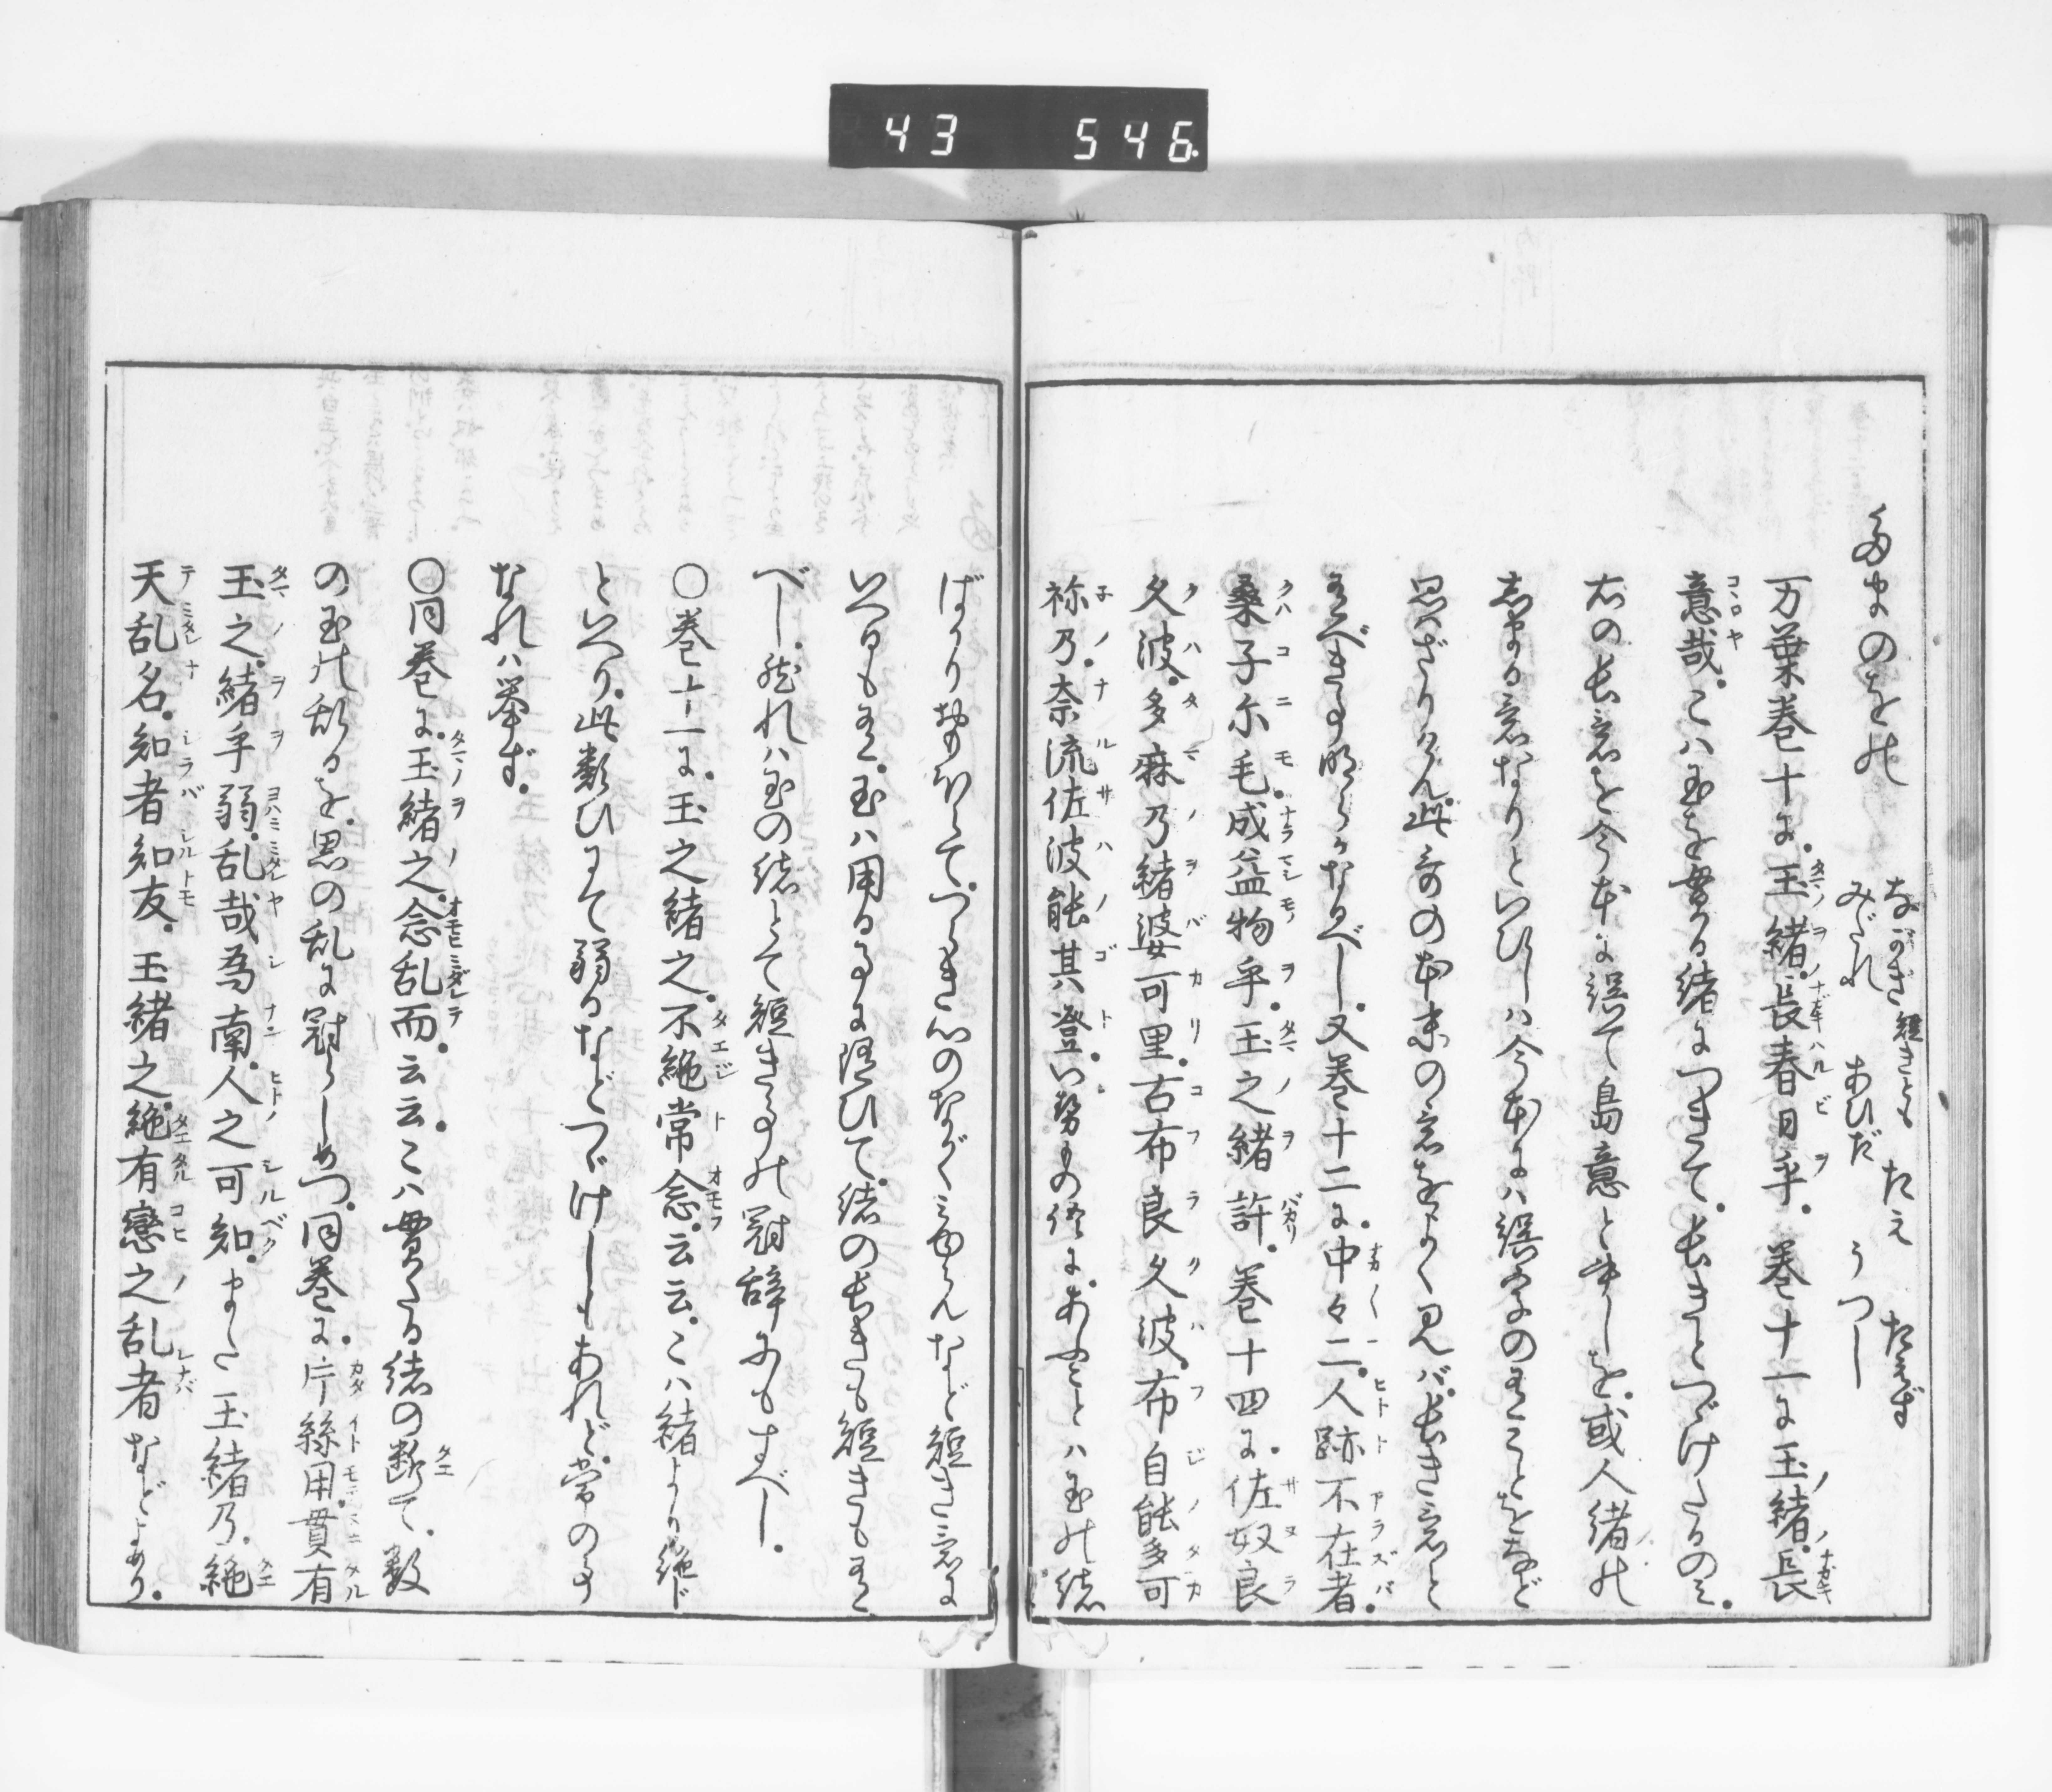 43 546
たまのをの
ながき短きとも たえ たえず
みだれ あひだ うつし
万葉巻十に。玉緒。長春日乎。巻十一に玉緒。長
意哉。こハ玉を貫る緒につきて。長きとつゞけたるのミ。
右の長意を今本に誤て島意と申しを。或人緒の
志まる意なりといひしハ今本にハ誤字の有ことをなど
思ハざりけん。此哥の本末の意をよく見バ。長き意と
有べき事明らかなるべし。又巻十二に。中々二。人跡不在者。
桑子尓毛。成益物乎。玉之緒許。巻十四に。佐奴良
久波。多麻乃緒婆可里。古布良久波。布自能多可
祢乃。奈流佐波能其登。
ばかり
いへるも有。玉ハ用る事に随ひて。緒の長きも短きも有
べし。然れハ玉の緒とて短き事の冠辞にもすべし。
○巻十一に。玉之緒之。不絶常念。云云。こハ緒より絶ド
といへり。此類ひにて弱るなどつゞけしもあれど。常の事
なれハ挙ず。
○同巻に。玉緒之。念乱而。云云。こハ貫たる緒の断て。数
の玉の乱るを。思の乱に冠らしめつ。同巻に。片絲用。貫有
玉之。緒乎弱。乱哉為南。人之可知。また玉緒乃。絶
天乱名。知者知友。玉緒之。絶有戀之乱者などよめり。